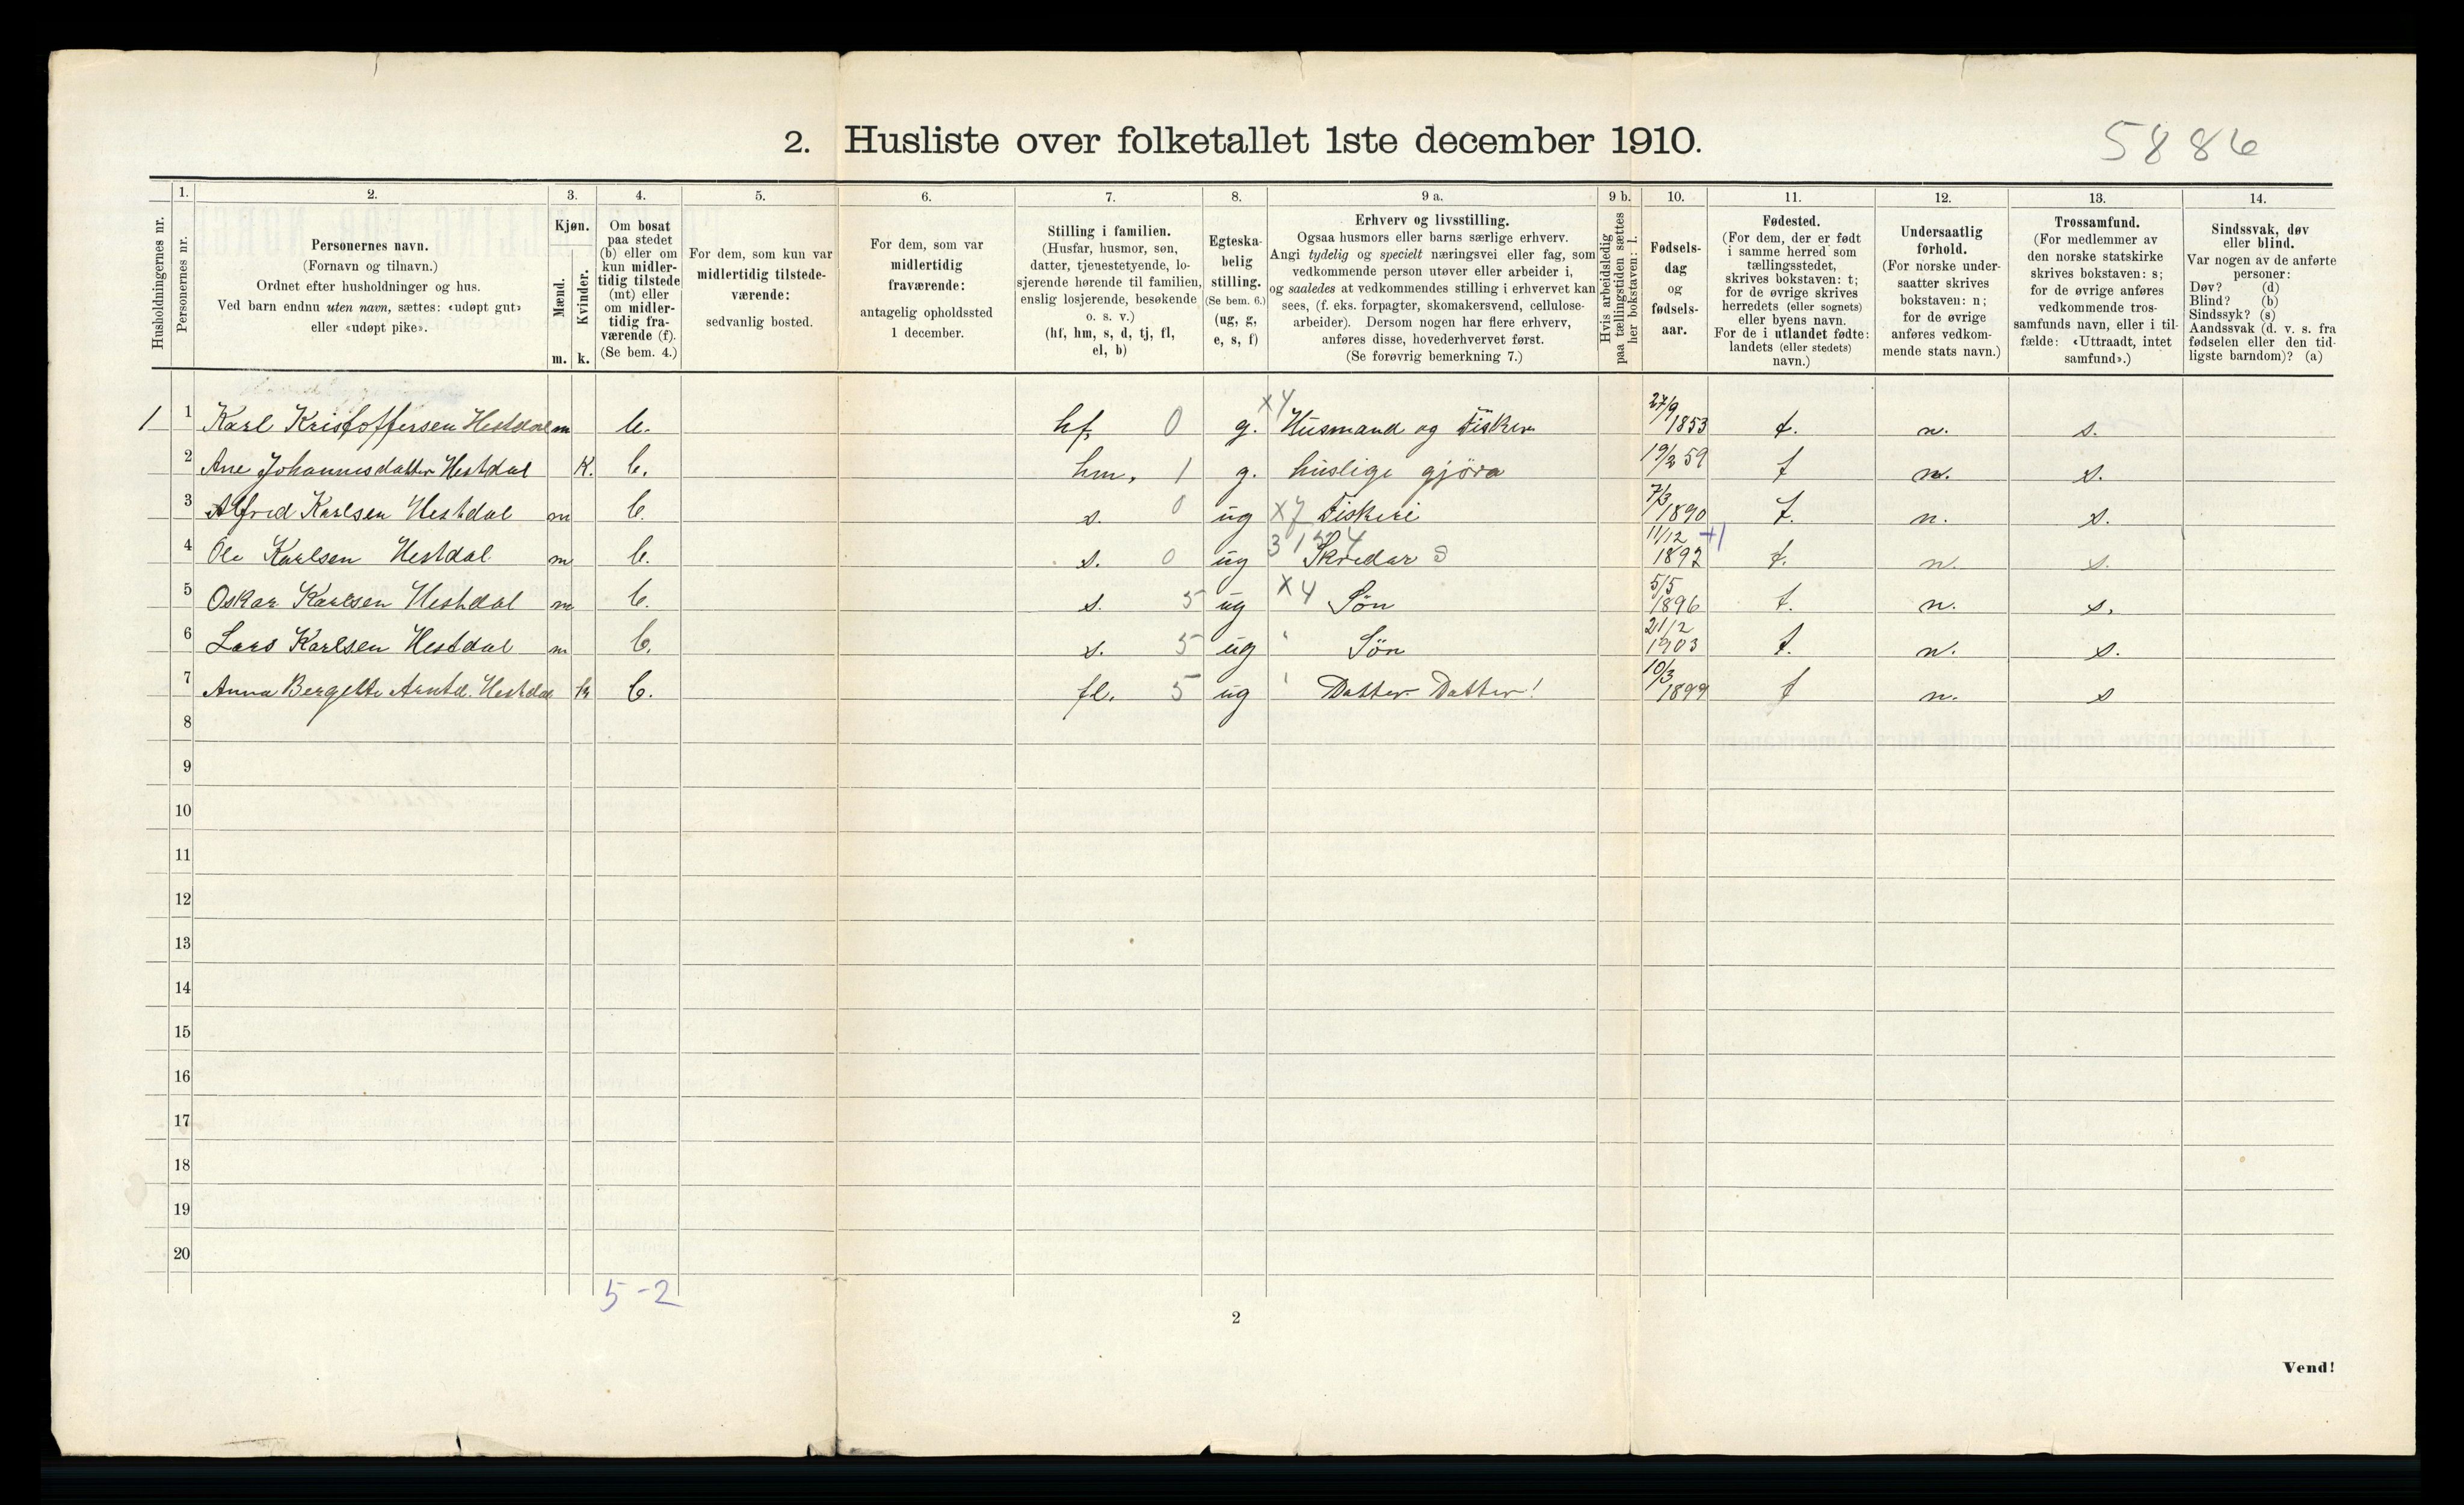 5886
2. Husliste over folketallet 1ste december 1910.
Husholdningernes nr.
1.
Personernes nr.
2.
Personernes navn.
(Fornavn og tilnavn.)
Ordnet efter husholdninger og hus.
Ved barn endnu uten navn, sættes: «udøpt gut»
eller «udøpt pike».
3.
Kjøn.
Mænd.
Kvinder.
m. k.
4.
Om bosat
paa stedet
(b) eller om
kun midler-
tidig tilstede
(mt) eller
om midler-
tidig fra-
værende (f).
(Se bem. 4.)
5.
For dem, som kun var
midlertidig tilstede-
værende:
sedvanlig bosted.
6.
For dem, som var
midlertidig
fraværende:
antagelig opholdssted
1 december.
7.
Stilling i familien.
(Husfar, husmor, søn,
datter, tjenestetyende, lo-
sjerende hørende til familien,
enslig losjerende, besøkende
o. s. v.)
(hf, hm, s, d, tj, fl,
el, b)
8.
Egteska-
belig
stilling.
(Se bem. 6.)
(ug, g,
e, s, f)
9 a.
Erhverv og livsstilling.
Ogsaa husmors eller barns særlige erhverv.
Angi tydelig og specielt næringsvei eller fag, som
vedkommende person utøver eller arbeider i,
og saaledes at vedkommendes stilling i erhvervet kan
sees, (f. eks. forpagter, skomakersvend, cellulose-
arbeider). Dersom nogen har flere erhverv,
anføres disse, hovederhvervet først.
(Se forøvrig bemerkning 7.)
9 b.
Hvis arbeidsledig
paa tællingstiden sættes
her bokstaven: l.
10.
Fødsels-
dag
og
fødsels-
aar.
11.
Fødested.
(For dem, der er født
i samme herred som
tællingsstedet,
skrives bokstaven: t;
for de øvrige skrives
herredets (eller sognets)
eller byens navn.
For de i utlandet fødte:
landets (eller stedets)
navn.)
12.
Undersaatlig
forhold.
(For norske under-
saatter skrives
bokstaven: n;
for de øvrige
anføres vedkom-
mende stats navn.)
13.
Trossamfund.
(For medlemmer av
den norske statskirke
skrives bokstaven: s;
for de øvrige anføres
vedkommende tros-
samfunds navn, eller i til-
fælde: «Uttraadt, intet
samfund».)
14.
Sindssvak, døv
eller blind.
Var nogen av de anførte
personer:
Døv? (d)
Blind? (b)
Sindssyk? (s)
Aandssvak (d. v. s. fra
fødselen eller den tid-
ligste barndom)? (a)
1 1 Karl Kristoffersen Hestdal m b. hf. 0 g. x4 Husmand og Fisker 27/9 1853 t. n. s.
2 Ane Johannesdatter Hestdal K. b. hm. 1 g. huslige gjöra 19/2 59 t n. s.
3 Alfred Karlsen Hestdal m b. s. 0 ug x7 Fiskeri 7/3 1890 t. n. s.
4 Ole Karlsen Hestdal m b. s. 0 ug Skredar S 11/12 1892 +1 t. n. s.
5 Oskar Karlsen Hestdal m b. s. 5 ug x4 Sön 5/5 1896 t. n. s.
6 Lars Karlsen Hestdal m b. s. 5 ug " Sön 21/2 1903 t. n. s.
7 Anna Bergette Arntd. Hestdal k b. fl. 5 ug " Datter Datter! 10/3 1899 t n. s
8
9
10
11
12
13
14
15
16
17
18
19
20
5-2
2
Vend!